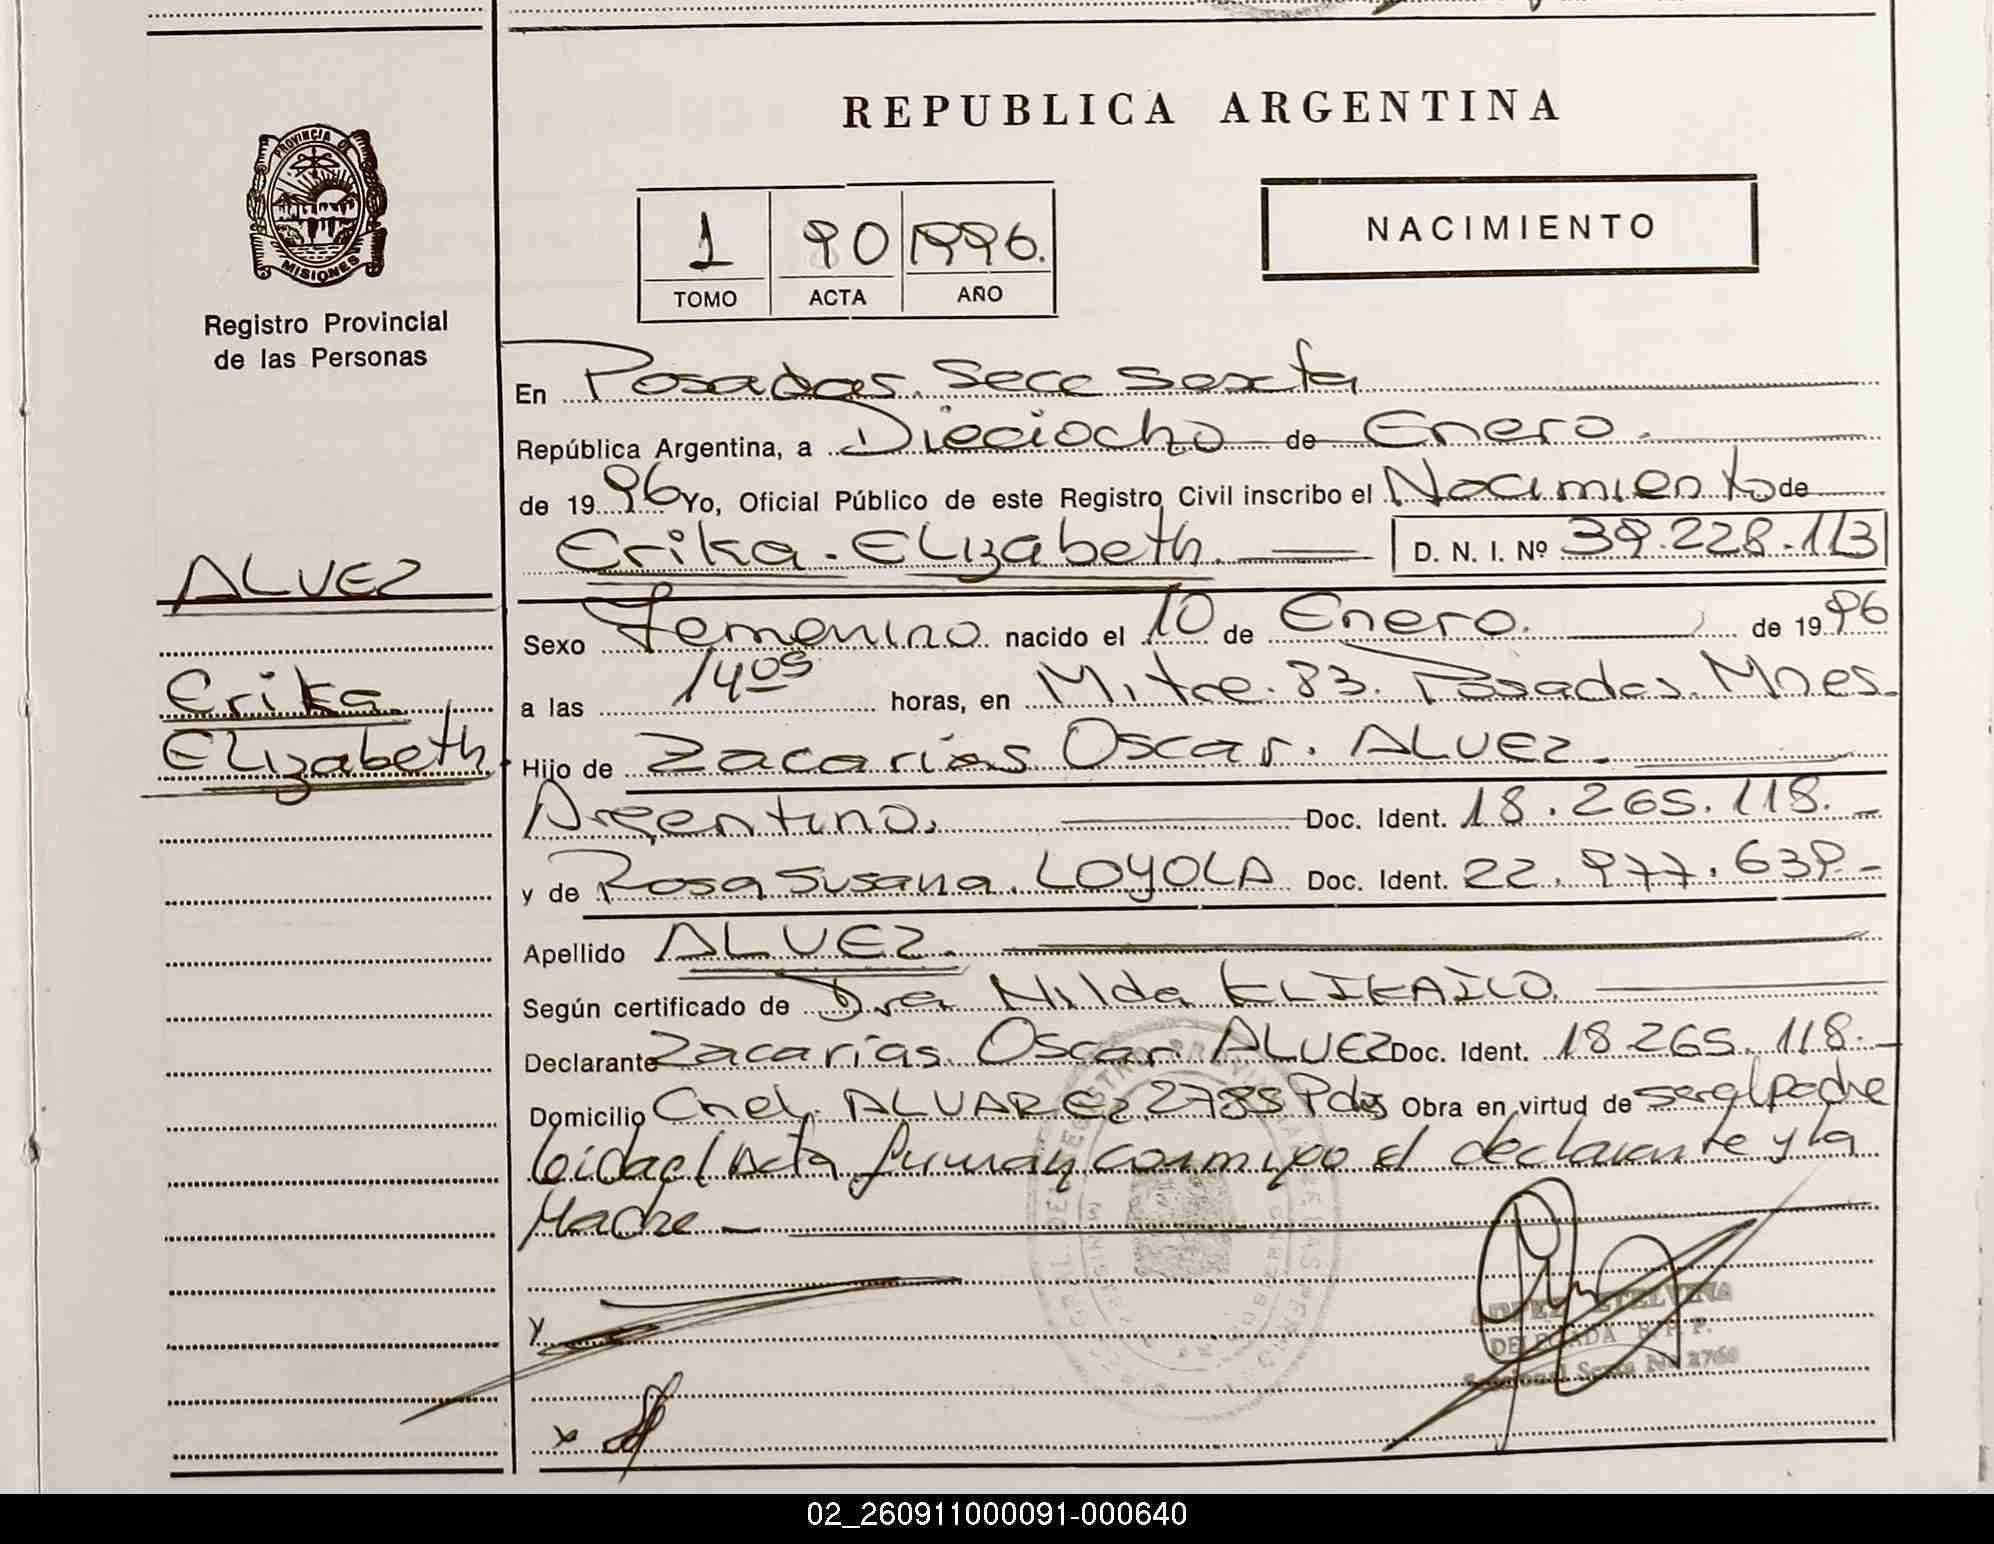 REPUBLICA ARGENTINA
PROVINCIA DE
MISIONES
Registro Provincial
de las Personas
1 90 1996.
TOMO ACTA AÑO
NACIMIENTO
En Posadas. Secc Sexta
República Argentina, a Dieciocho de Enero.
de 1996 Yo, Oficial Público de este Registro Civil inscribo el Nacimiento de
Erika. ELizabeth. D. N. I. Nº 39.228.113
ALVEZ
Erika
ELizabeth
Sexo Femenino nacido el 10 de Enero. de 1996
a las 14 05 horas, en Mitre. 83. Posadas. Mnes.
Hijo de Zacarías Oscar. ALVEZ.
Argentino. Doc. Ident. 18.265.118.-
y de Rosa Susana. LOYOLA Doc. Ident. 22.977.639.-
Apellido ALVEZ.
Según certificado de Dra Nilda
Declarante Zacarías Oscar ALVEZ Doc. Ident. 18.265.118.-
Domicilio Cnel. ALVAREZ 2785 Pdas Obra en virtud de ser el padre
leida el Acta firman conmigo el declarante y la
Madre -
ETELVINA
DELEGADA R. P. P.
Seccional Sexta Nº 2760
02_260911000091-000640